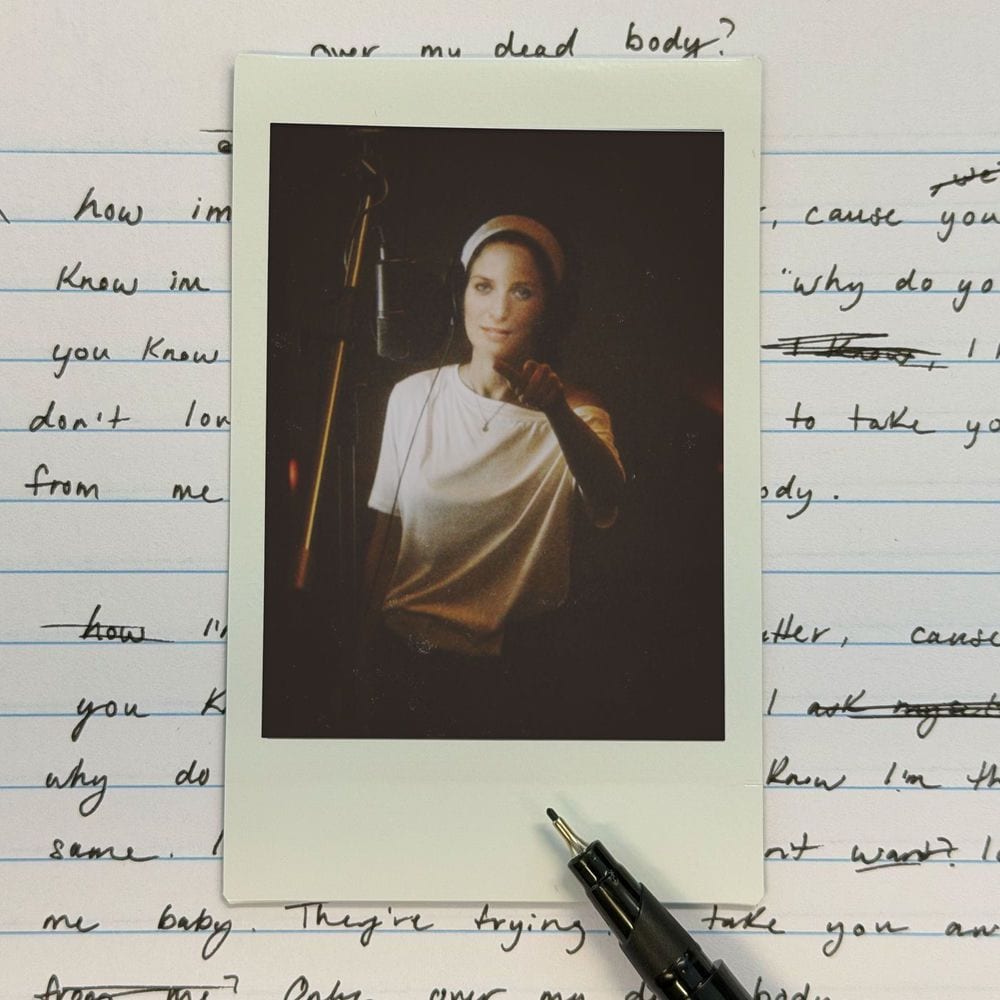 over my dead body?
how im , cause you
Know im "why do yo
you Know I Know, I
don't lov to take yo
from me ody.
how I'm tter, cause
you K I ask myself
why do Know I'm th
same. I n't want? lo
me baby. They're trying take you aw
from me? Only over my d body